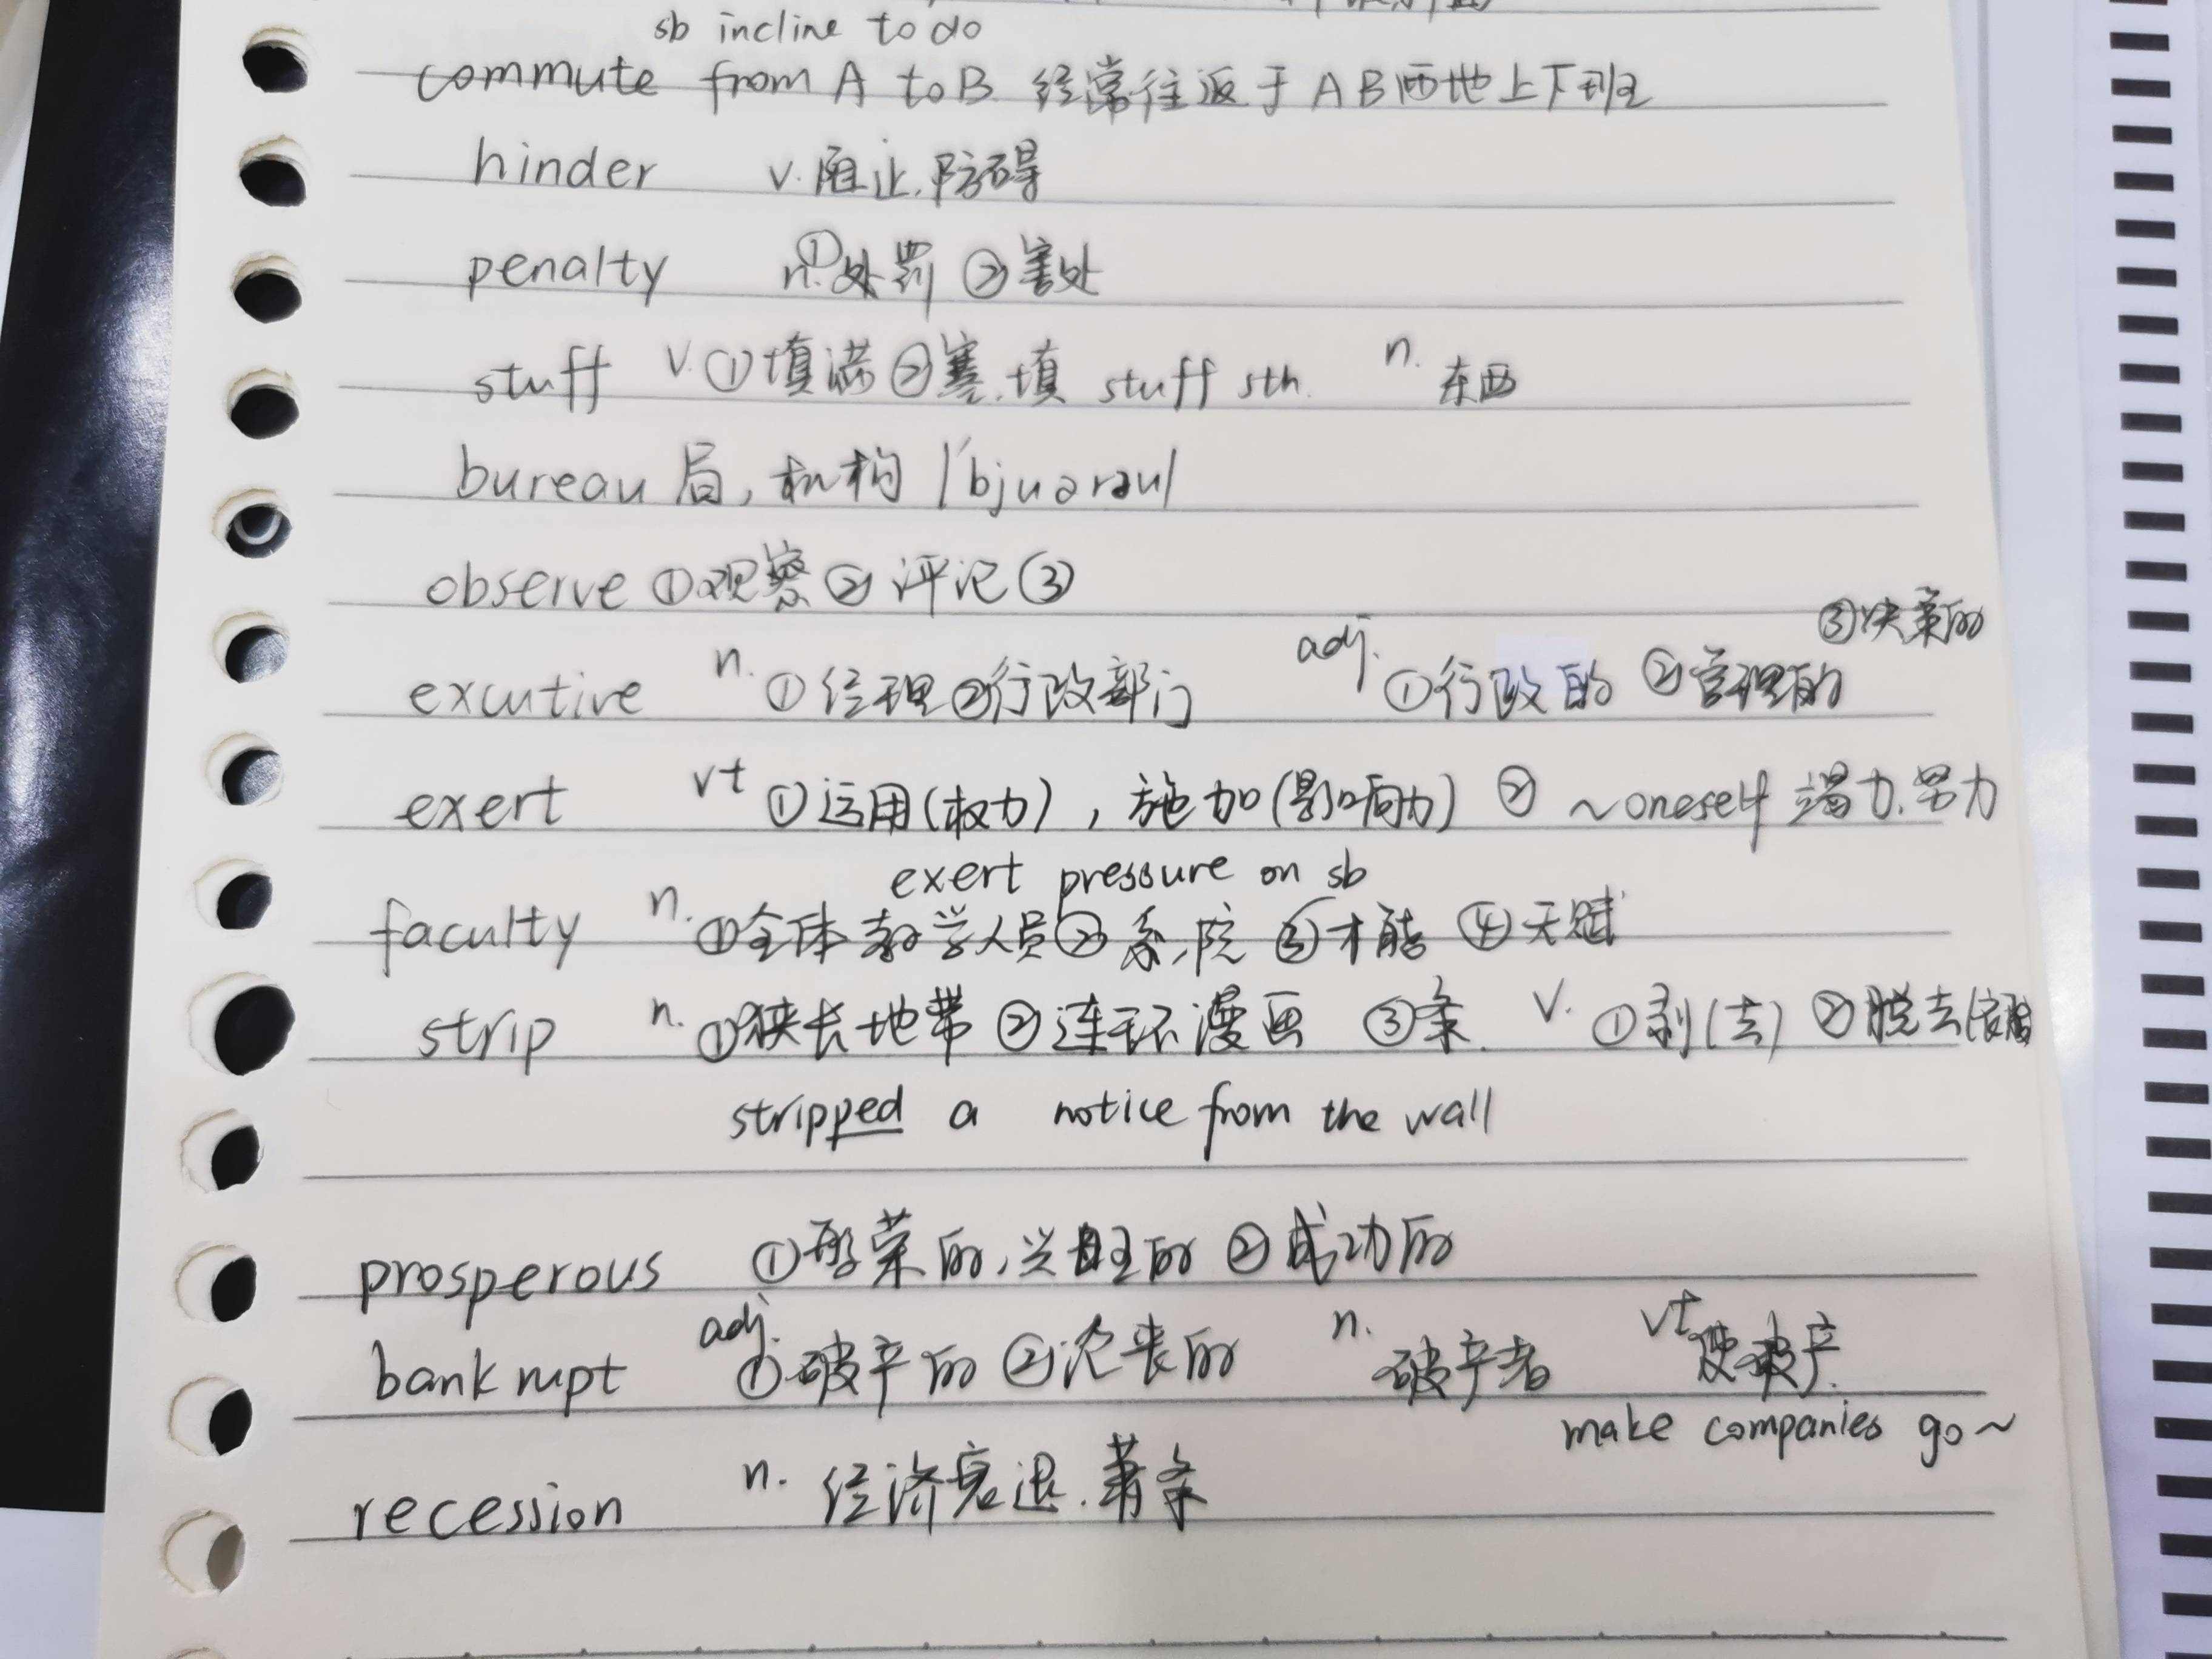 sb incline to do
commute from A to B 经常往返于AB两地上下班
hinder v. 阻止.防碍
penalty n.①处罚 ②害处
stuff v.①填满②塞.填 stuff sth. n. 东西
bureau 局,机构 /'bjuərəu/
observe ①观察②评记③
③决策的
excutive n. ①经理②行政部门 adj. ①行政的 ②管理的
exert vt ①运用(权力),施加(影响力) ② ~oneself 竭力.努力
exert pressure on sb
faculty n. ①全体教学人员②系,院 ③才能 ④天赋
strip n. ①狭长地带②连环漫画 ③条. v. ①剥(去) ②脱去(衣服
stripped a notice from the wall
prosperous ①繁荣的,兴旺的 ②成功的
bankrupt adj. ①破产的②沦丧的 n. 破产者 vt 使破产.
make companies go~
recession n. 经济衰退.萧条